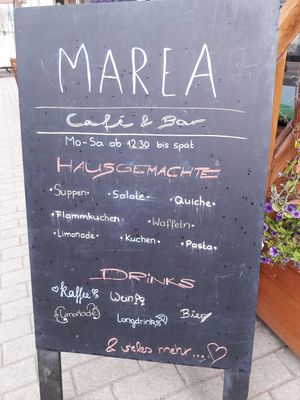 MAREA
Café & Bar
Mo-Sa ab 12:30 bis spät
HAUSGEMACHTE
• Suppen • Salate • Quiche •
• Flammkuchen • Waffeln •
• Limonade • Kuchen • Pasta •
DRINKS
Kaffee Wein Bier
Limonade Longdrinks
& vieles mehr...